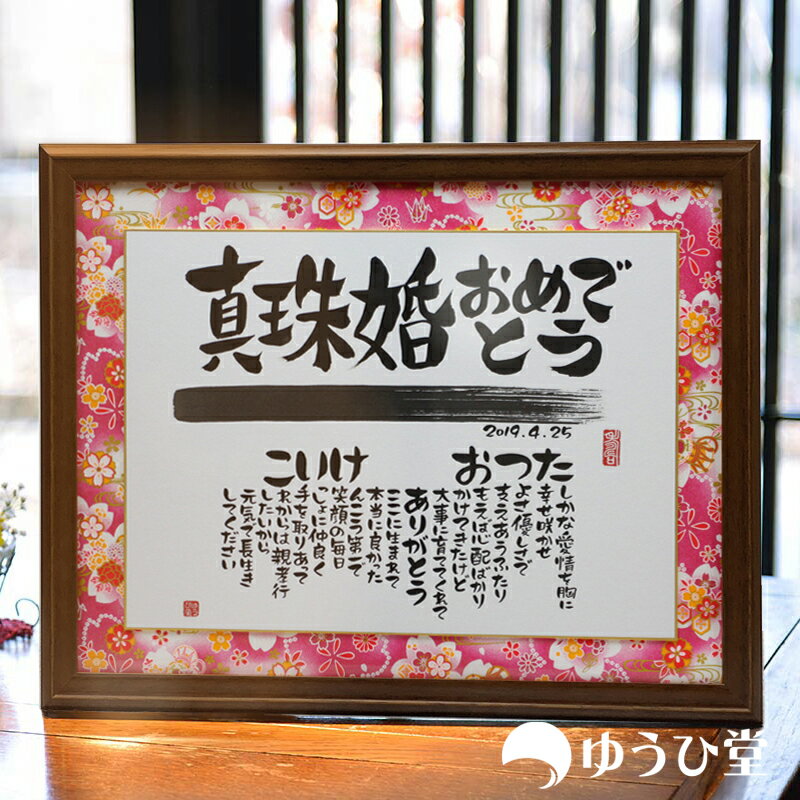 真珠婚おめで
とう
2019.4.25
たしかな愛情を胸に
幸せ咲かせ
つよさ優しさで
支えあうふたり
おもえば心配ばかり
かけてきたけど
大事に育ててくれて
ありがとう
ここに生まれて
本当に良かった
けんこう第一で
笑顔の毎日
いっしょに仲良く
手を取りあって
これからは親孝行
したいから
元気で長生き
してください
ゆうひ堂